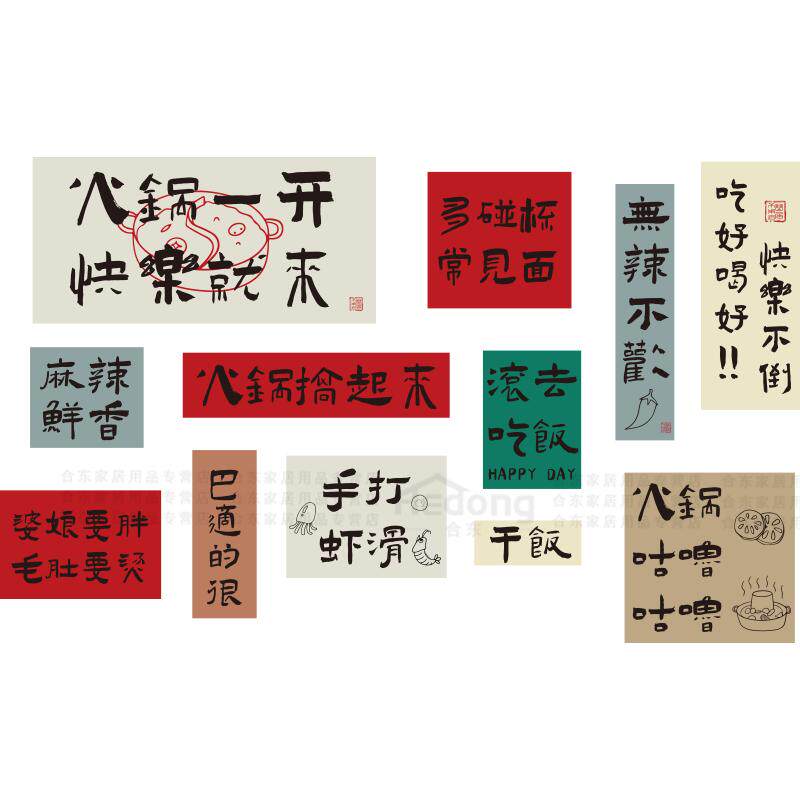 火鍋一开
快樂就來
多碰杯
常見面
無辣不歡
吃好喝好!!
快樂不倒
麻辣
鮮香
火鍋搞起來
滚去
吃飯
HAPPY DAY
婆娘要胖
毛肚要烫
巴適的很
手打
虾滑
干飯
火鍋
咕嚕
咕嚕
合东家居用品专营店
Hedong
合东